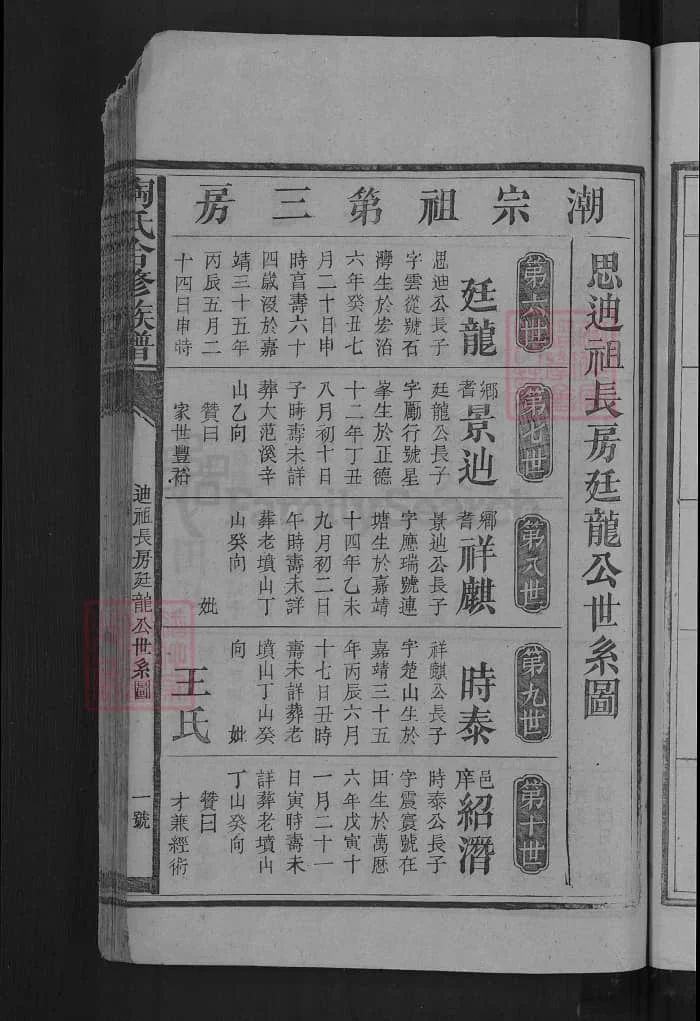 潮宗祖第三房
思迪祖長房廷龍公世系圖
第六世
廷龍
思迪公長子
字雲從號石
灣生於宏治
六年癸丑七
月二十日申
時享壽六十
四歲沒於嘉
靖三十五年
丙辰五月二
十四日申時
第七世
鄉耆
景迪
廷龍公長子
字勵行號星
峯生於正德
十二年丁丑
八月初十日
子時壽未詳
葬大范溪辛
山乙向
贊曰
家世豐裕
第八世
鄉耆
祥麒
景迪公長子
字應瑞號連
塘生於嘉靖
十四年乙未
九月初二日
午時壽未詳
葬老墳山丁
山癸向
妣
第九世
時泰
祥麒公長子
字楚山生於
嘉靖三十五
年丙辰六月
十七日丑時
壽未詳葬老
墳山丁山癸
向
妣
王氏
第十世
邑庠
紹濳
時泰公長子
字震寰號在
田生於萬曆
六年戊寅十
一月二十一
日寅時壽未
詳葬老墳山
丁山癸向
贊曰
才兼經術
陶氏合修族譜
迪祖長房廷龍公世系圖
一號